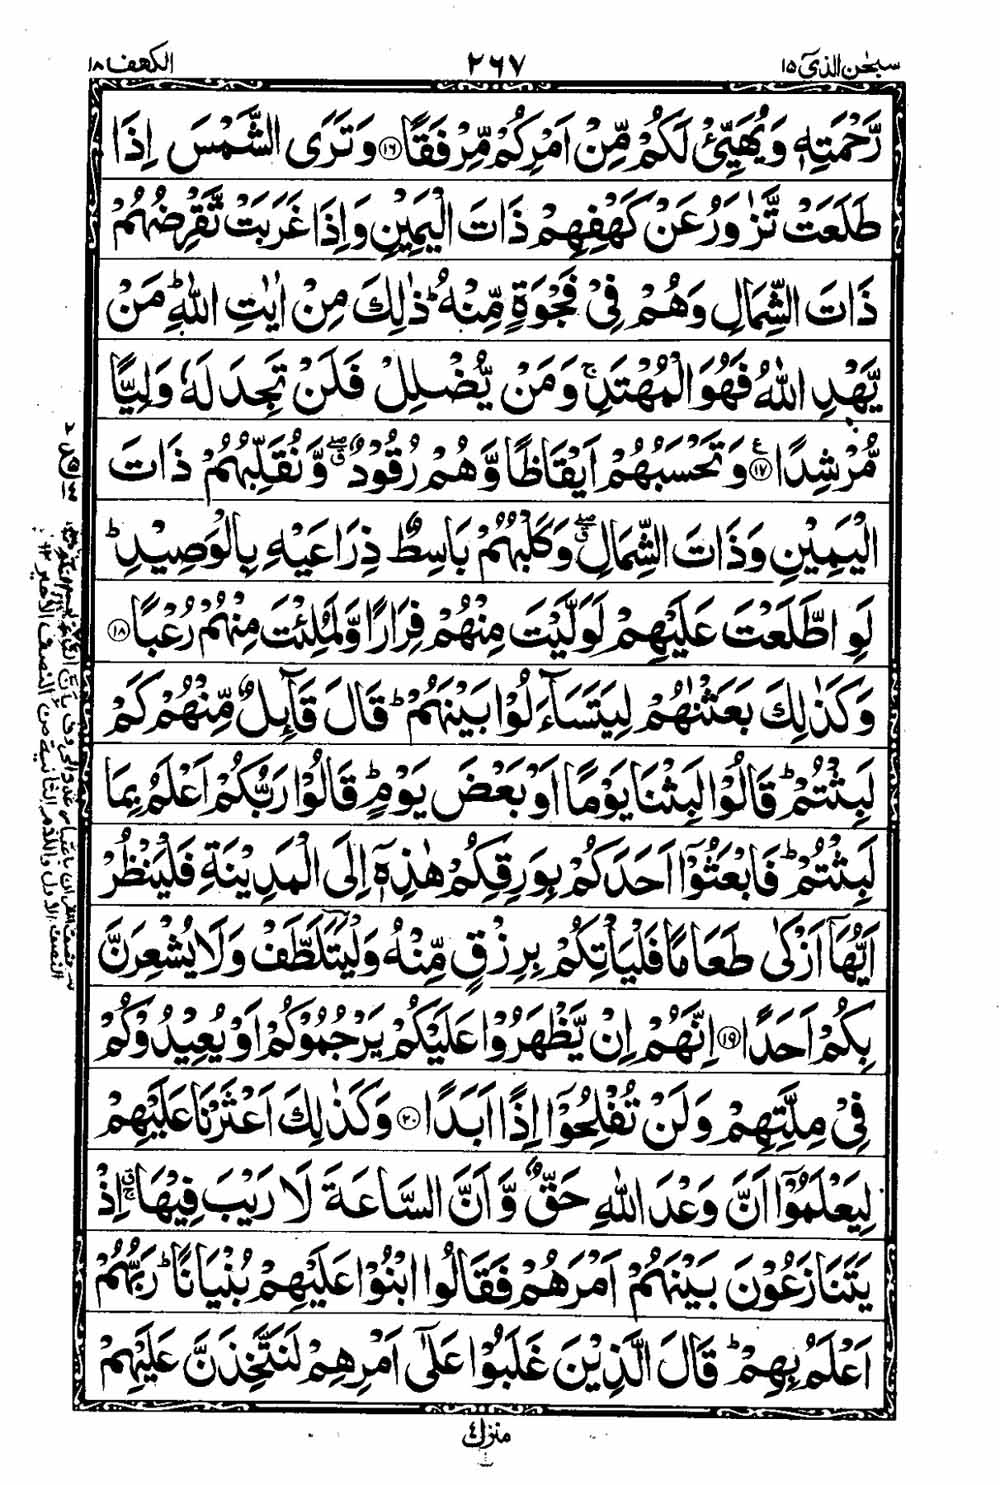 سبحٰن الذی ١٥
٢٦٧
الکهف ١٨
رَّحْمَتِهٖ وَيُهَيِّئْ لَكُمْ مِّنْ اَمْرِكُمْ مِّرْفَقًا ﴿١٦﴾ وَتَرَى الشَّمْسَ اِذَا
طَلَعَتْ تَّزٰوَرُ عَنْ كَهْفِهِمْ ذَاتَ الْيَمِيْنِ وَاِذَا غَرَبَتْ تَّقْرِضُهُمْ
ذَاتَ الشِّمَالِ وَهُمْ فِيْ فَجْوَةٍ مِّنْهُ ؕ ذٰلِكَ مِنْ اٰيٰتِ اللّٰهِ ؕ مَنْ
يَّهْدِ اللّٰهُ فَهُوَ الْمُهْتَدِ ۚ وَمَنْ يُّضْلِلْ فَلَنْ تَجِدَ لَهٗ وَلِيًّا
مُّرْشِدًا ﴿١٧﴾ وَتَحْسَبُهُمْ اَيْقَاظًا وَّهُمْ رُقُوْدٌ ۖ وَّنُقَلِّبُهُمْ ذَاتَ
الْيَمِيْنِ وَذَاتَ الشِّمَالِ ۖ وَكَلْبُهُمْ بَاسِطٌ ذِرَاعَيْهِ بِالْوَصِيْدِ ؕ
لَوِ اطَّلَعْتَ عَلَيْهِمْ لَوَلَّيْتَ مِنْهُمْ فِرَارًا وَّلَمُلِئْتَ مِنْهُمْ رُعْبًا ﴿١٨﴾
وَكَذٰلِكَ بَعَثْنٰهُمْ لِيَتَسَآءَلُوْا بَيْنَهُمْ ؕ قَالَ قَآئِلٌ مِّنْهُمْ كَمْ
لَبِثْتُمْ ؕ قَالُوْا لَبِثْنَا يَوْمًا اَوْ بَعْضَ يَوْمٍ ؕ قَالُوْا رَبُّكُمْ اَعْلَمُ بِمَا
لَبِثْتُمْ ؕ فَابْعَثُوْٓا اَحَدَكُمْ بِوَرِقِكُمْ هٰذِهٖٓ اِلَى الْمَدِيْنَةِ فَلْيَنْظُرْ
اَيُّهَآ اَزْكٰى طَعَامًا فَلْيَاْتِكُمْ بِرِزْقٍ مِّنْهُ وَلْيَتَلَطَّفْ وَلَا يُشْعِرَنَّ
بِكُمْ اَحَدًا ﴿١٩﴾ اِنَّهُمْ اِنْ يَّظْهَرُوْا عَلَيْكُمْ يَرْجُمُوْكُمْ اَوْ يُعِيْدُوْكُمْ
فِيْ مِلَّتِهِمْ وَلَنْ تُفْلِحُوْٓا اِذًا اَبَدًا ﴿٢٠﴾ وَكَذٰلِكَ اَعْثَرْنَا عَلَيْهِمْ
لِيَعْلَمُوْٓا اَنَّ وَعْدَ اللّٰهِ حَقٌّ وَّاَنَّ السَّاعَةَ لَا رَيْبَ فِيْهَا ۚ اِذْ
يَتَنَازَعُوْنَ بَيْنَهُمْ اَمْرَهُمْ فَقَالُوا ابْنُوْا عَلَيْهِمْ بُنْيَانًا ؕ رَبُّهُمْ
اَعْلَمُ بِهِمْ ؕ قَالَ الَّذِيْنَ غَلَبُوْا عَلٰٓى اَمْرِهِمْ لَنَتَّخِذَنَّ عَلَيْهِمْ
منزل ٤